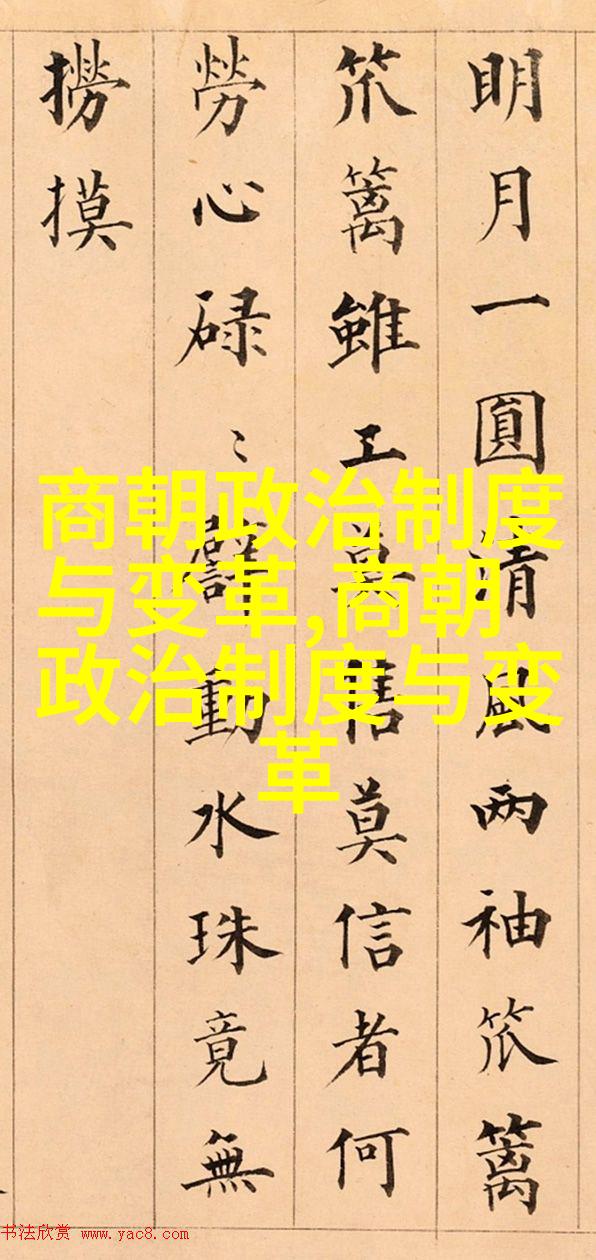 明月一圓清風两袖笊篱
笊篱雖工售莫信者何
勞心碌〻動水珠竟無
撈摸
商朝政治制度
与变革,商朝
政治制度与变
革
书法欣赏 www.yac8.com